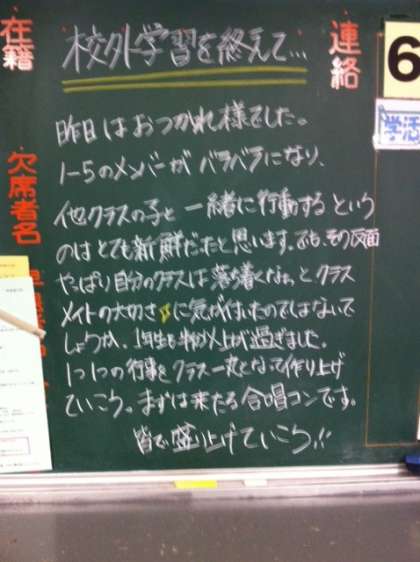 在籍
欠席者名
連絡
6
学活
校外学習を終えて…
昨日はおつかれ様でした。
1-5のメンバーがバラバラになり、
他クラスの子と一緒に行動するという
のはとても新鮮だったと思います。でも、その反面
やっぱり自分のクラスは落ち着くなぁっと、クラス
メイトの大切さに気が付いたのではないで
しょうか。1年生も半分以上が過ぎました。
1つ1つの行事をクラス一丸となって作り上げ
ていこう。まずは来たる合唱コンです。
皆で盛り上げていこう!!